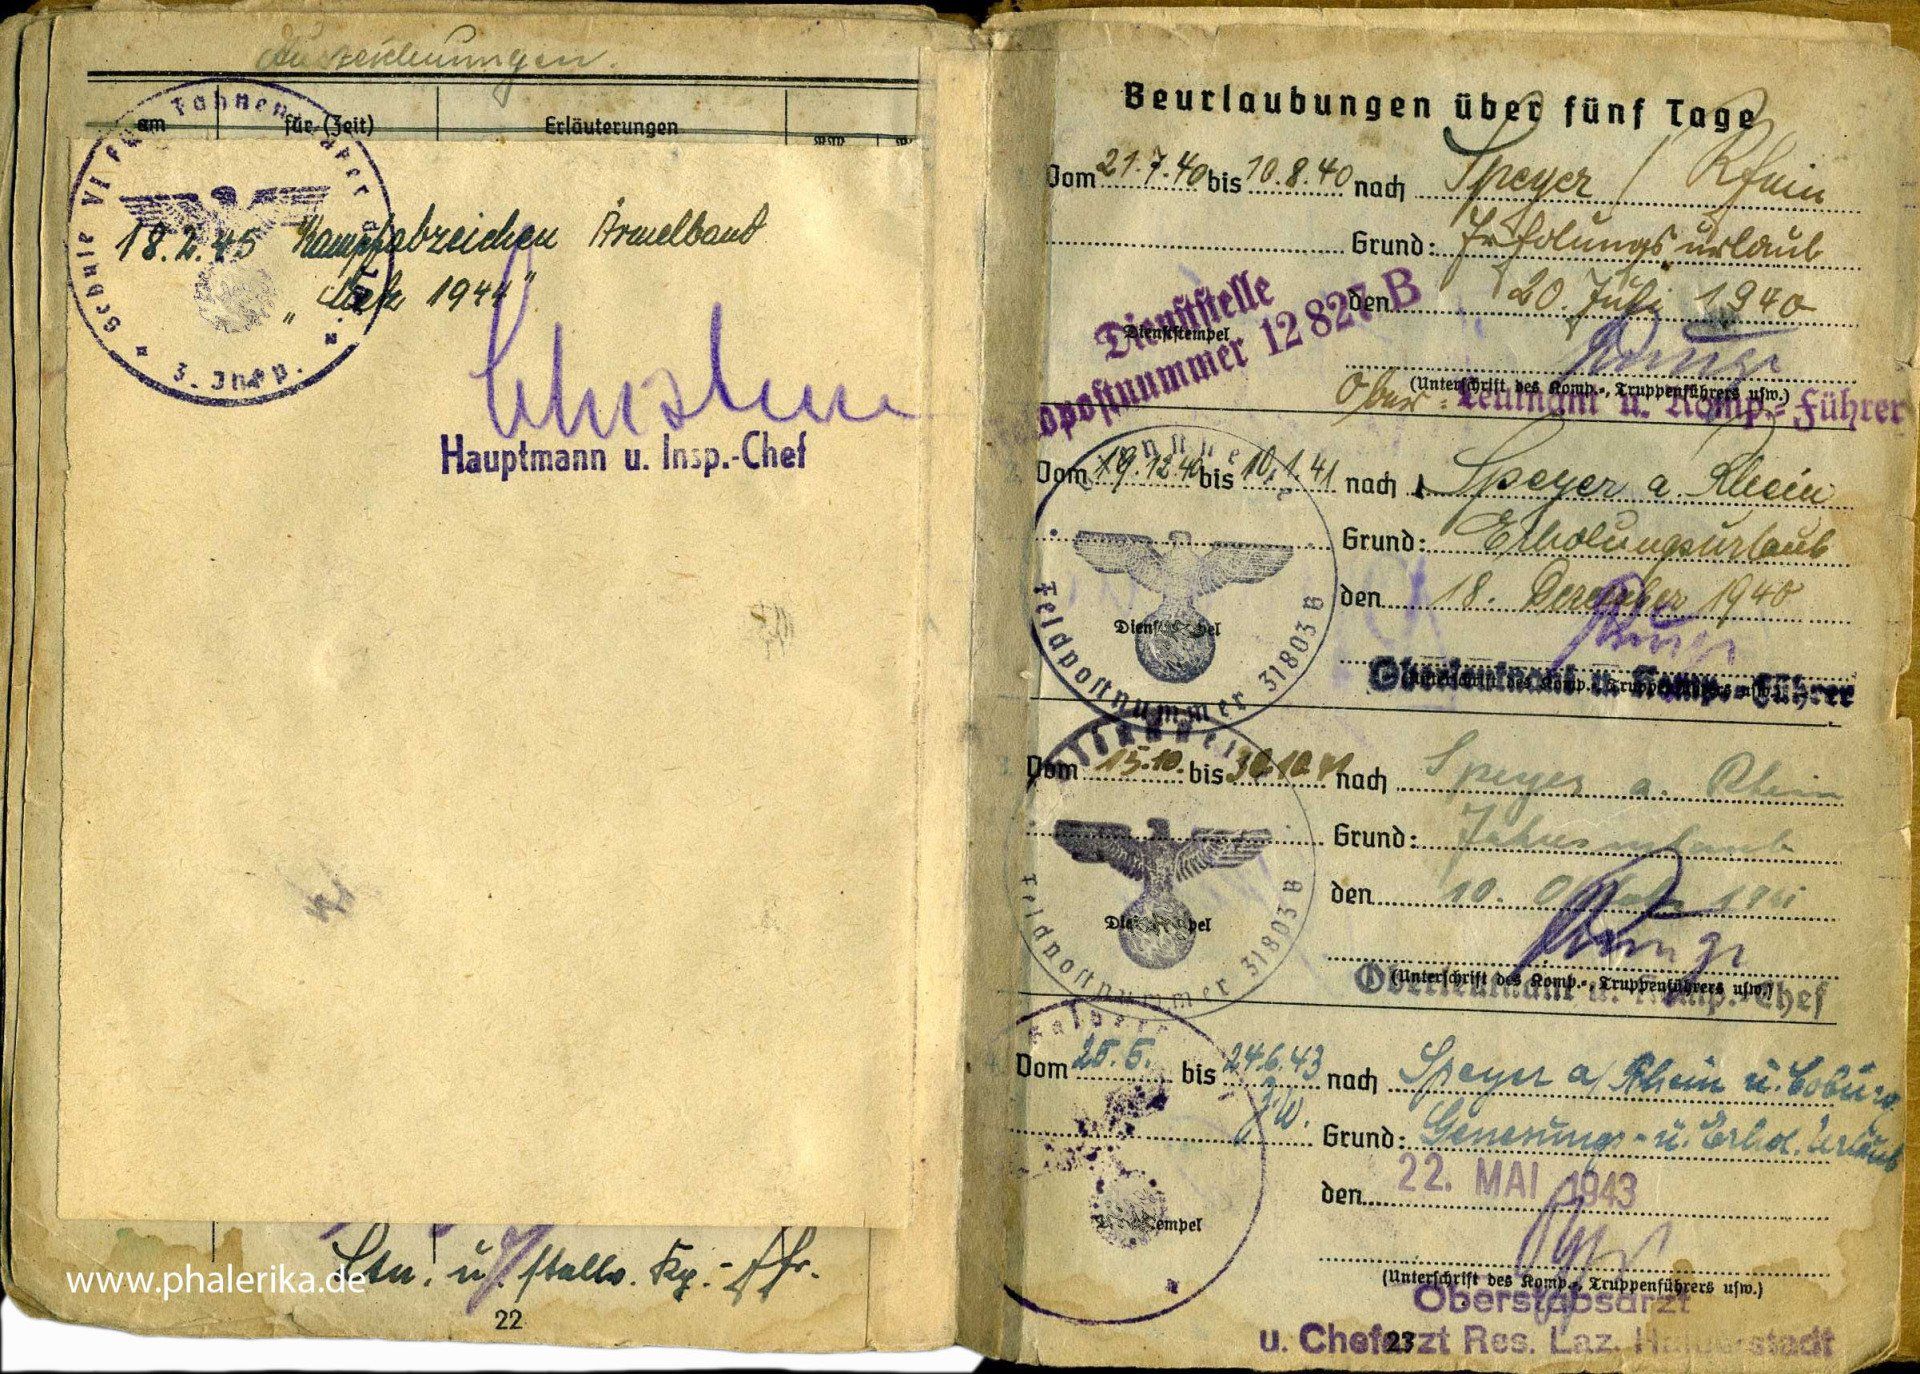 Auszeichnungen.
am für (Zeit) Erläuterungen
Schule VI für Fahnenjunker
3. Insp.
18.2.45 "Kampfabzeichen Ärmelband
"Metz 1944"
Hauptmann u. Insp.-Chef
Ltn. u. stellv. Kp.-Fhr.
www.phalerika.de
22
Beurlaubungen über fünf Tage
Vom 21.7.40 bis 10.8.40 nach Speyer / Rhein
Grund: Erholungsurlaub
Dienststelle
Feldpostnummer 12 827 B
den 20. Juli 1940
Dienststempel
(Unterschrift des Komp.-, Truppenführers usw.)
Ober-Leutnant u. Komp.-Führer
2. Vom 19.12.40 bis 10.1.41 nach Speyer a. Rhein
Grund: Erholungsurlaub
den 18. Dezember 1940
Dienststempel
Feldpostnummer 31803 B
(Unterschrift des Komp.-, Truppenführers usw.)
Oberleutnant u. Komp.-Führer
3. Vom 15.10. bis 30.10.41 nach Speyer a. Rhein
Grund: Jahresurlaub
den 10. Oktober 1941
Dienststempel
Feldpostnummer 31803 B
(Unterschrift des Komp.-, Truppenführers usw.)
Oberleutnant u. Komp.-Chef
4. Vom 25.5. bis 24.6.43 nach Speyer a/Rhein u. Coburg
Grund: Genesungs- u. Erhol. Urlaub
den 22. MAI 1943
Dienststempel
(Unterschrift des Komp.-, Truppenführers usw.)
Oberstabsarzt
u. Chefarzt Res. Laz. Halberstadt
23